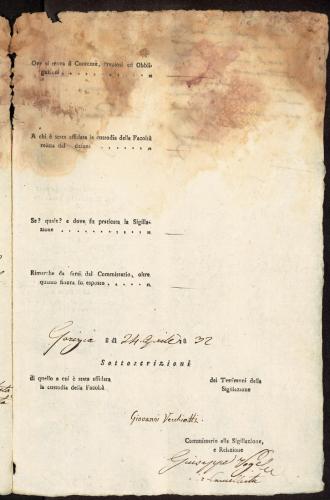 Ove si trova il Contante, Preziosi ed Obbli-
gazioni . . . . . . . . . . »
A chi è stata affidata la custodia della Facoltà
relitta dal defunto . . . . . . . »
Se? quale? e dove fu praticata la Sigilla-
zione . . . . . . . . . . »
Rimarche da farsi dal Commissario, oltre
quanto finora fu esposto . . . . . »
Gorizia a dì 24 32
Sottoscrizione
di quello a cui è stata affidata
la custodia della Facoltà
dei Testimoni della
Sigilazione
Giovanni
Commissario alla Sigillazione,
e Relazione
Giuseppe